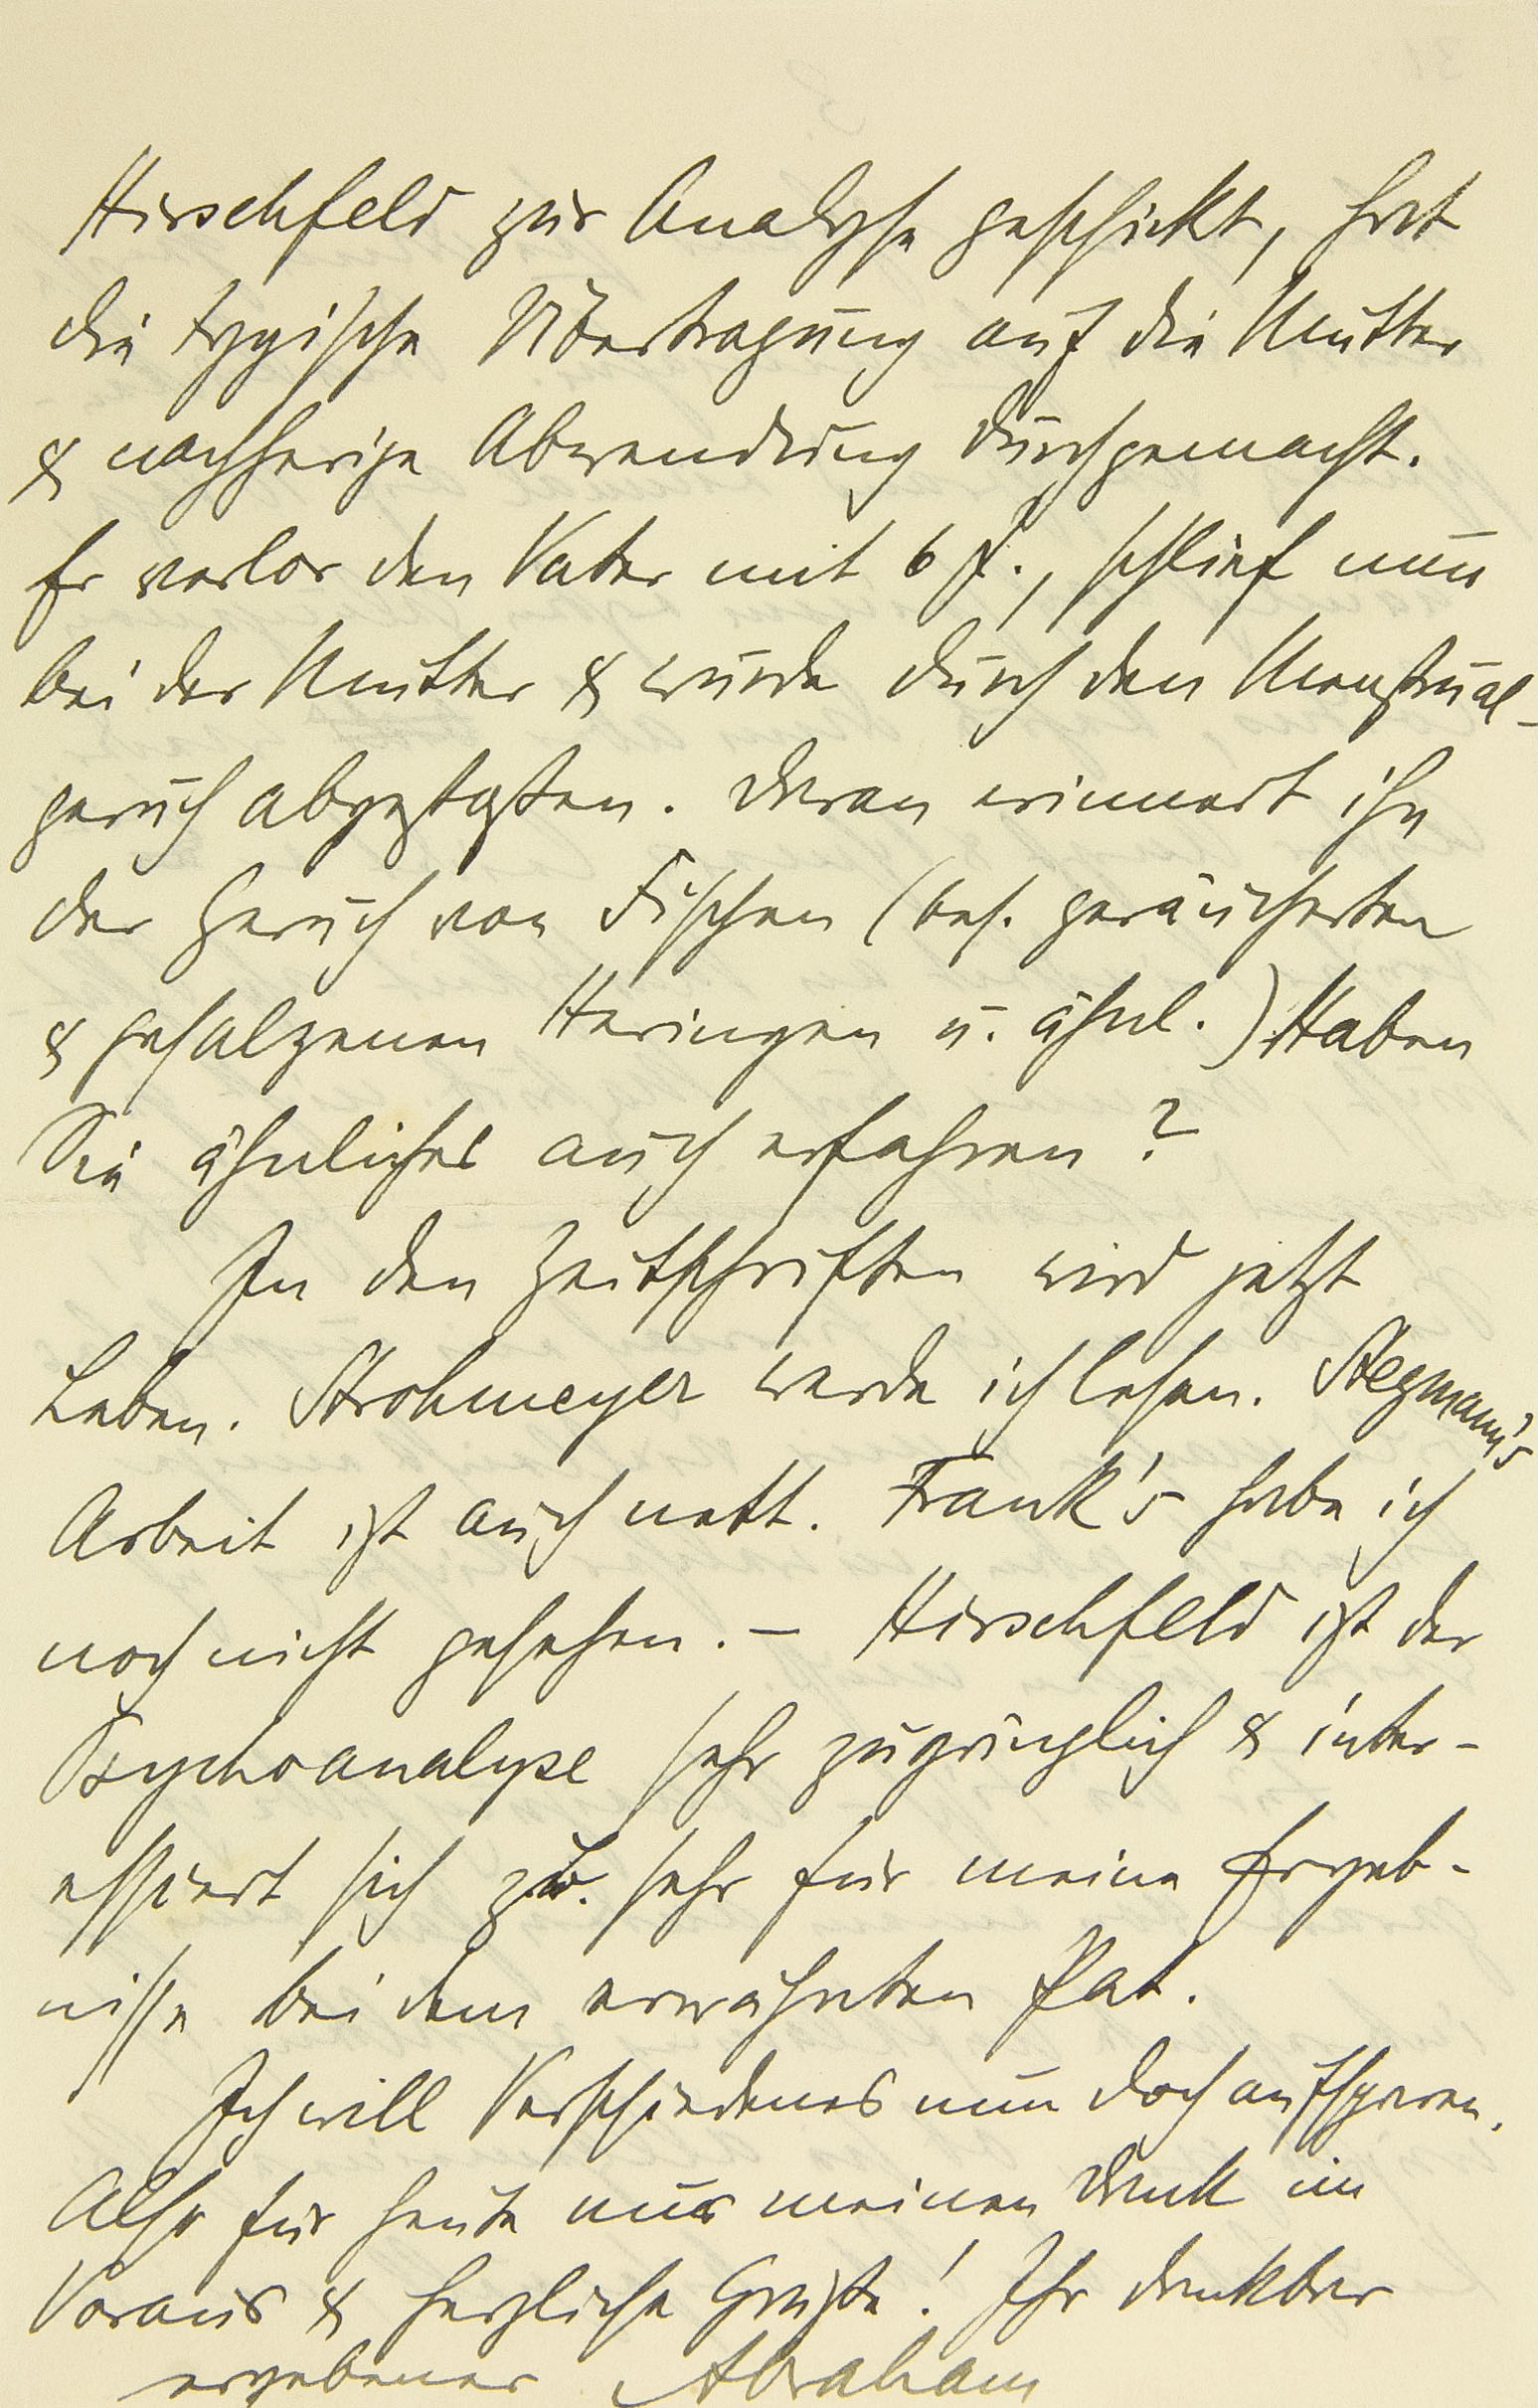 Hirschfeld zur Analyse geschickt, hat
die typische Übertragung auf die Mutter
& nachherige Abwendung durchgemacht.
Er verlor den Vater mit 6 J., schlief nun
bei der Mutter & wurde durch den Menstrual-
geruch abgestoßen. Daran erinnert ihn
der Geruch von Fischen (bes. geräucherten
& gesalzenen Heringen u. ähnl.) Haben
Sie ähnliches auch erfahren?
In den Zeitschriften wird jetzt
Leben. Strohmeyer werde ich lesen. Stegmann's
Arbeit ist auch nett. Frank's habe ich
noch nicht gesehen. – Hirschfeld ist der
Psychoanalyse sehr zugänglich & inter-
essiert sich sehr für meine Ergeb-
nisse bei dem erwähnten Pat.
Ich will Verschiedenes nun doch aufsparen.
Also für heute nur meinen Dank im
Voraus & herzliche Grüße! Ihr dankbar
ergebener Abraham